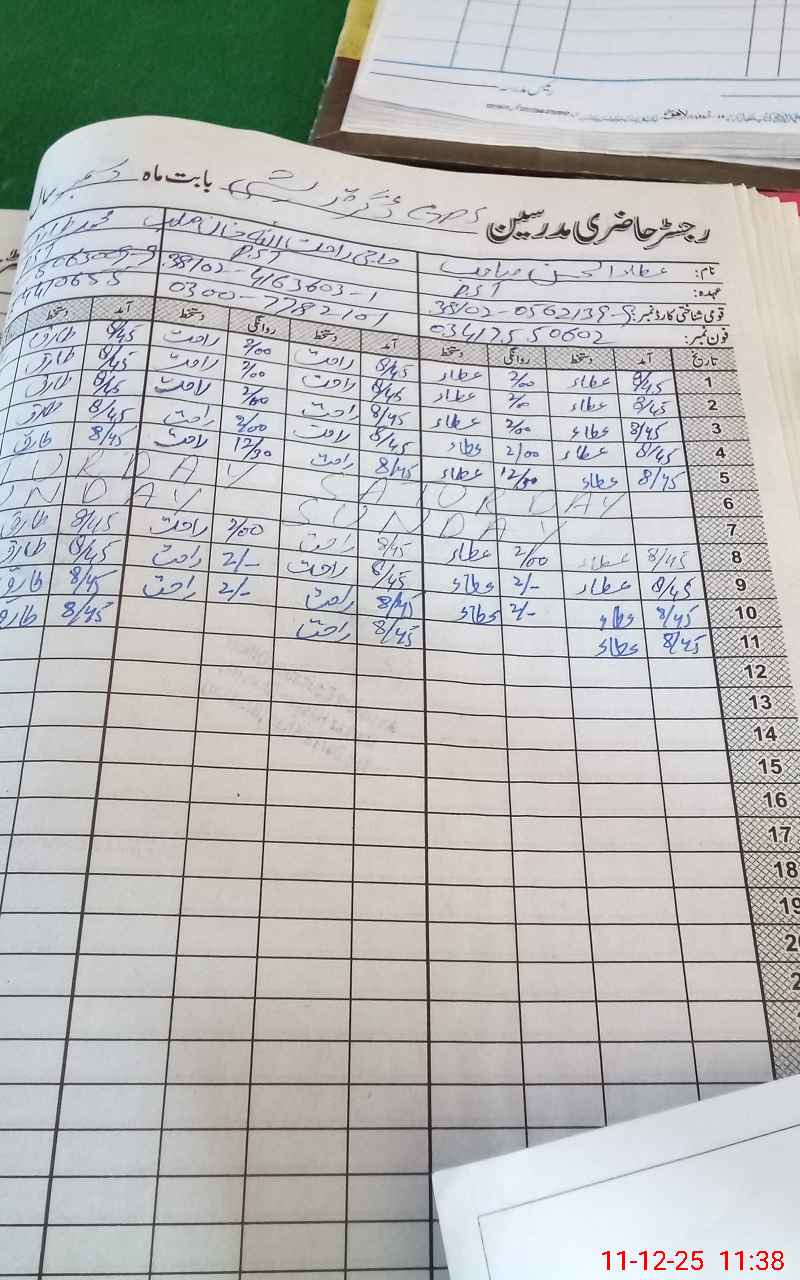 رئیس مدرسہ
رجسٹر حاضری مدرسین GPS بابت ماہ دسمبر سال
نام: عطاء الحسن صاحب حاجی راحت اللہ خان صاحب
عہدہ: PST PST
قومی شناختی کارڈ نمبر: 38102-0562139-9 38102-4163603-1
فون نمبر: 03417550602 0300-7782101
تاریخ آمد دستخط روانگی دستخط آمد دستخط روانگی دستخط آمد دستخط
1 8/45 عطاء 2/00 عطاء 8/45 راحت 2/00 راحت 8/45 طارق
2 8/45 عطاء 2/00 عطاء 8/45 راحت 2/00 راحت 8/45 طارق
3 8/45 عطاء 2/00 عطاء 8/45 راحت 2/00 راحت 8/45 طارق
4 8/45 عطاء 2/00 عطاء 8/45 راحت 2/00 راحت 8/45 طارق
5 8/45 عطاء 12/30 عطاء 8/45 راحت 12/30 راحت 8/45 طارق
6 SATURDAY TURDAY
7 SUNDAY UNDAY
8 8/45 عطاء 2/00 عطاء 8/45 راحت 2/00 راحت 8/45 طارق
9 8/45 عطاء 2/- عطاء 8/45 راحت 2/- راحت 8/45 طارق
10 8/45 عطاء 2/- عطاء 8/45 راحت 2/- راحت 8/45 طارق
11 8/45 عطاء 8/45 راحت 8/45 طارق
12
13
14
15
16
17
18
11-12-25 11:38